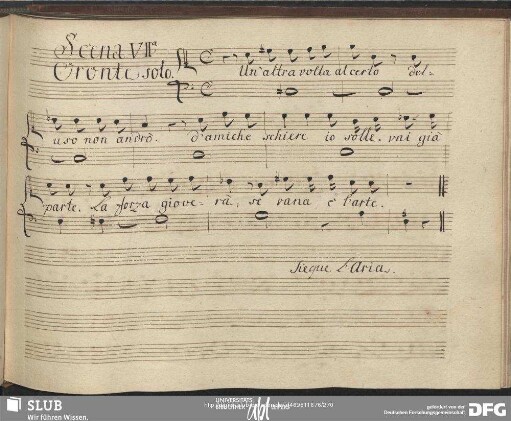 Scena VII.a
Oronte solo.
Un'altra volta al certo del-
uso non andrò. d'amiche schiere io solle-vai già
parte. La forza giove-rà, se vana è l'arte.
Siegue l'Aria.
SLUB
Wir führen Wissen.
gefördert von der
Deutschen Forschungsgemeinschaft
DFG